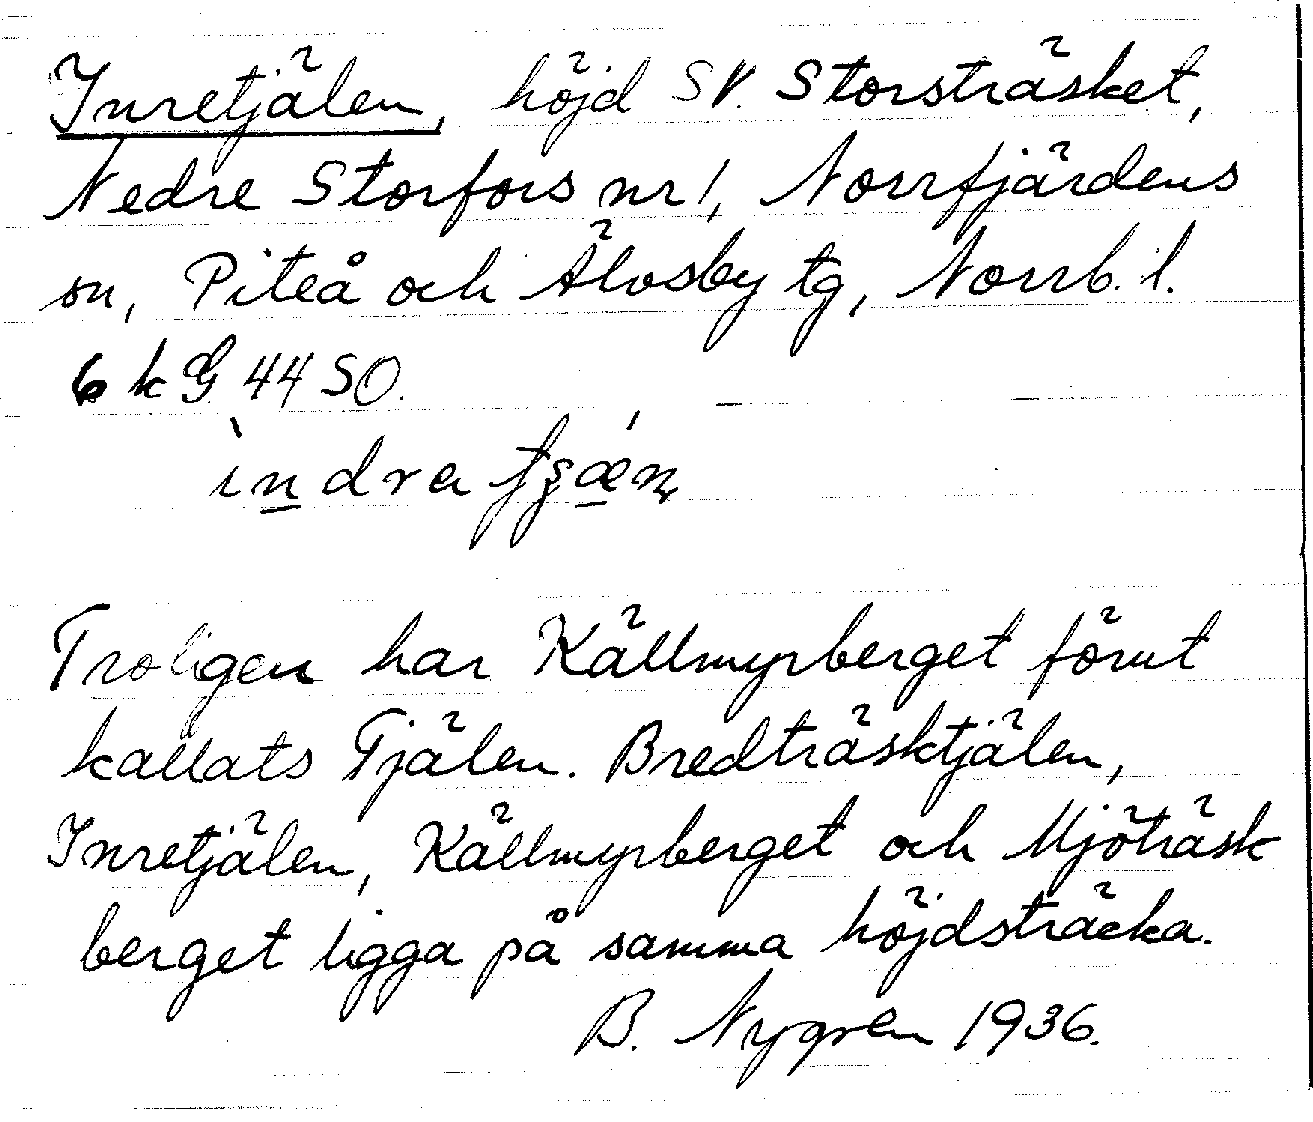 Inretjälen, höjd SV. Storsträsket,
Nedre Storfors nr 1, Norrfjärdens
sn, Piteå och Älvsby tg, Norrb. l.
6 k G 44 SO.
ìndra
Troligen har Källmyrberget förut
kallats Tjälen. Bredträsktjälen,
Inretjälen, Källmyrberget och Mjöträsk
berget ligga på samma höjdsträcka.
B. Nygren 1936.